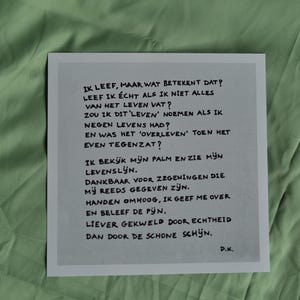 IK LEEF, MAAR WAT BETEKENT DAT?
LEEF IK ÉCHT ALS IK NIET ALLES
VAN HET LEVEN VAT?
ZOU IK DIT 'LEVEN' NOEMEN ALS IK
NEGEN LEVENS HAD?
EN WAS HET 'OVERLEVEN' TOEN HET
EVEN TEGENZAT?
IK BEKIJK MIJN PALM EN ZIE MIJN
LEVENSLIJN.
DANKBAAR VOOR ZEGENINGEN DIE
MIJ REEDS GEGEVEN ZIJN.
HANDEN OMHOOG, IK GEEF ME OVER
EN BELEEF DE PIJN.
LIEVER GEKWELD DOOR ECHTHEID
DAN DOOR DE SCHONE SCHIJN.
D.K.